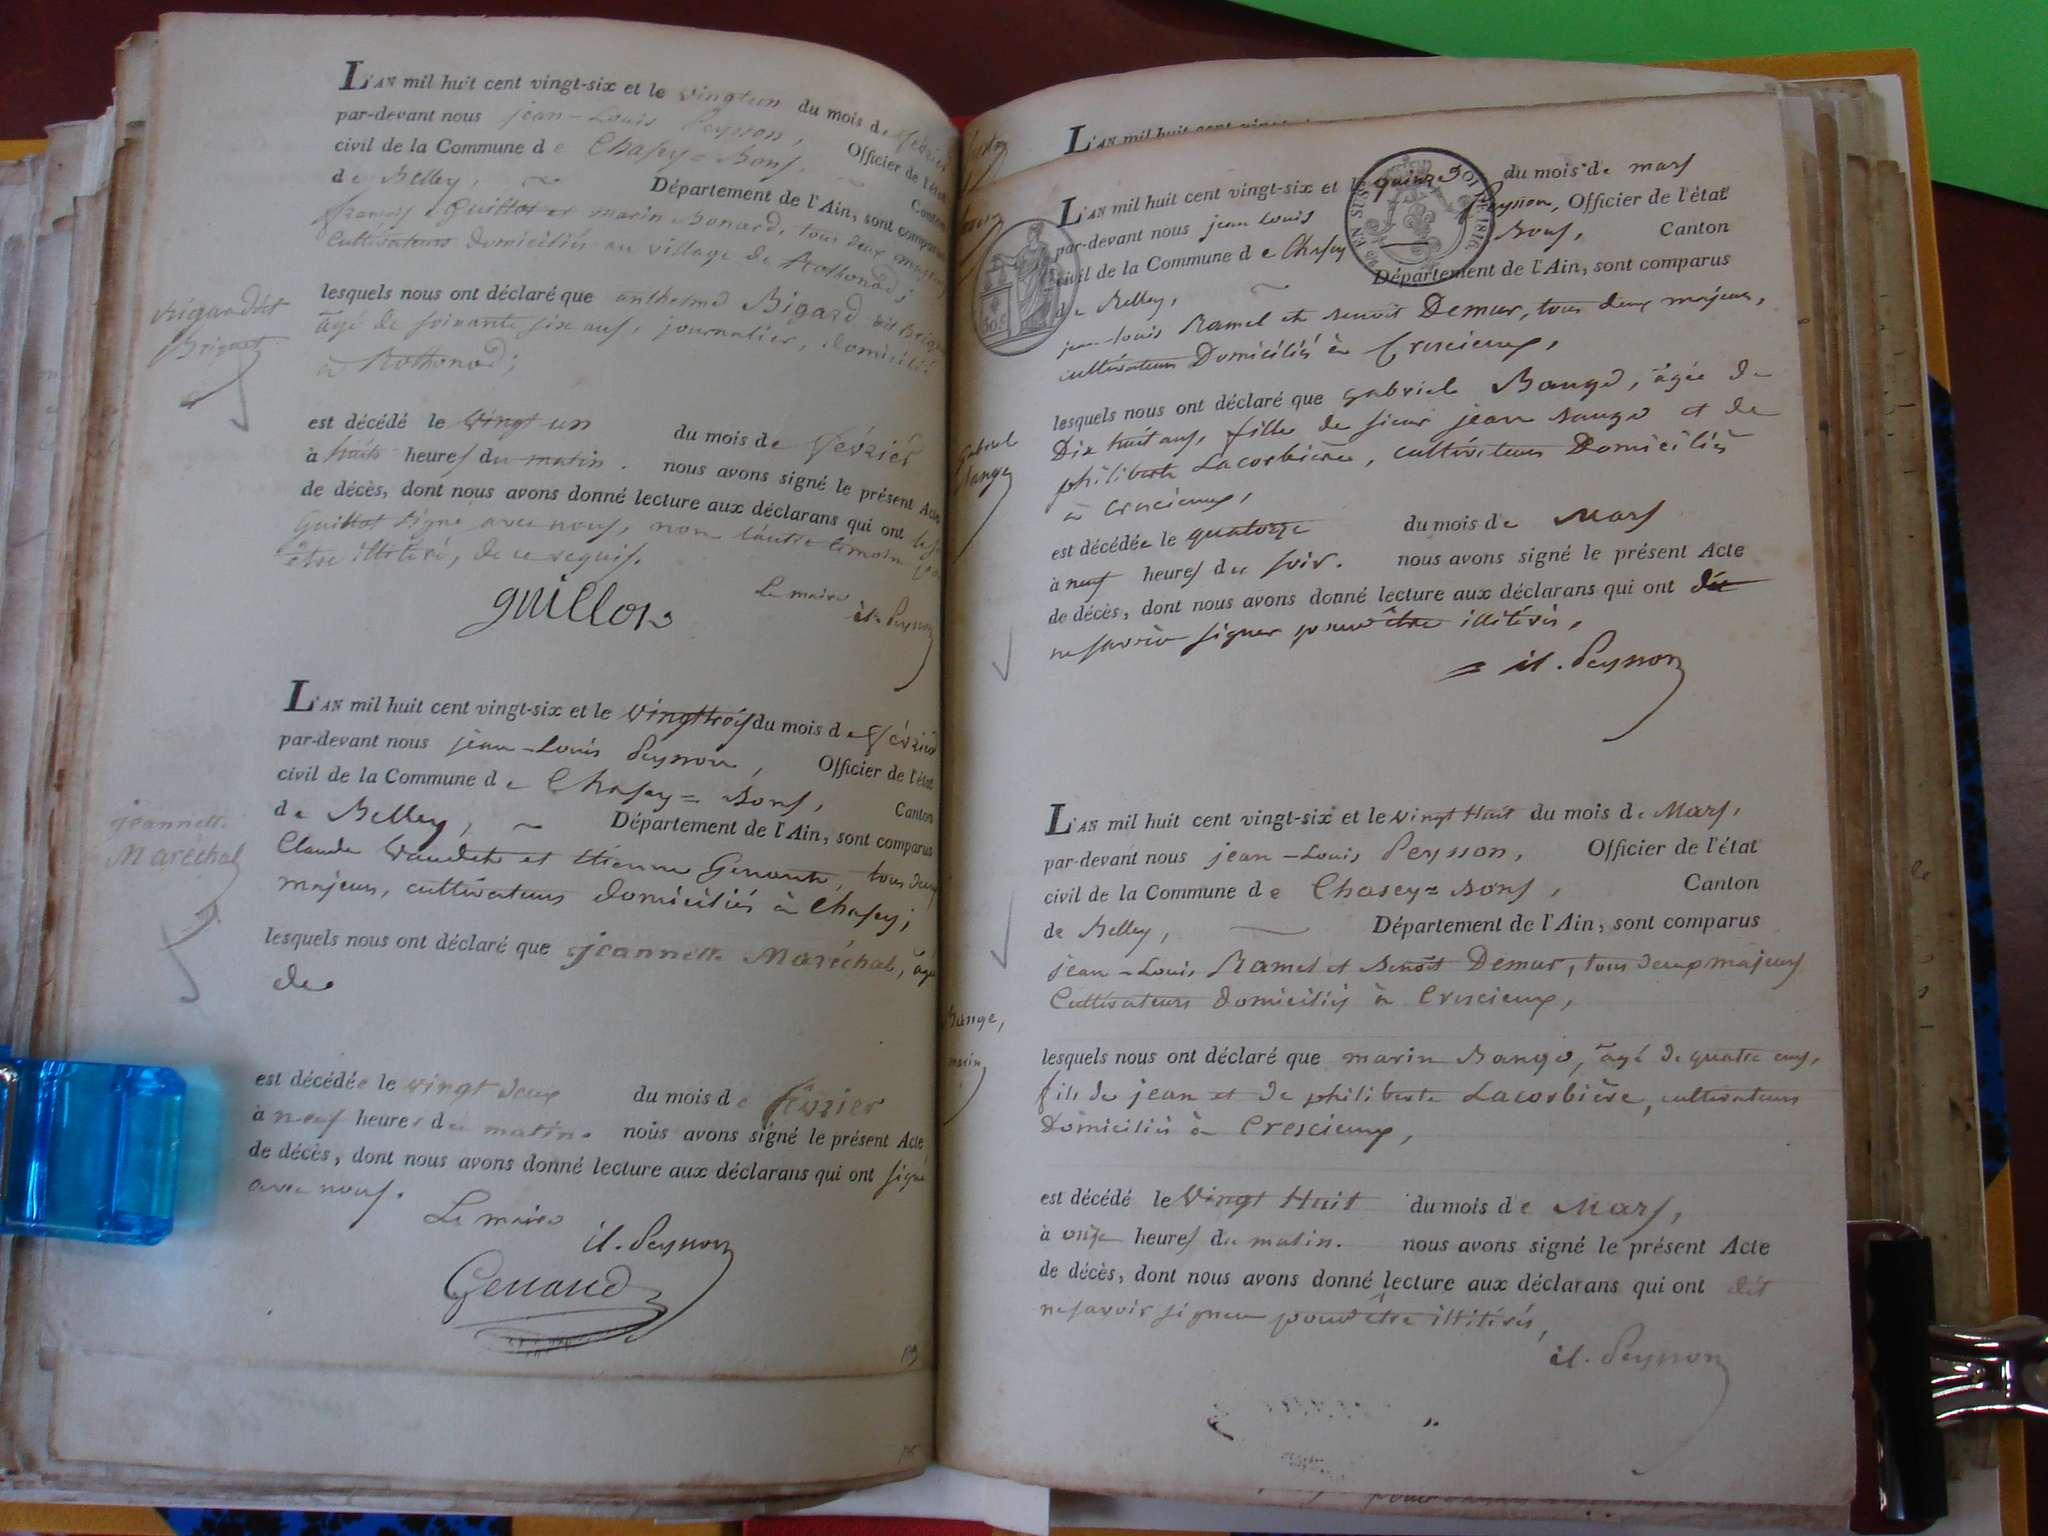 L'AN mil huit cent vingt-six et le vingt un du mois de février
par-devant nous jean-Louis Peysson, Officier de l'état
civil de la Commune de Chasey=Bons, Canton
de Belley, Département de l'Ain, sont comparus
françois Guillot et marin Bonard, tous deux majeurs
Cultivateurs domiciliés au village de Rothonod;
lesquels nous ont déclaré que anthelme Bigard dit
âgé de soixante six ans, journalier, domicilié
à Rothonod;
est décédé le vingt un du mois de février
à huit heures du matin. nous avons signé le présent Acte
de décès, dont nous avons donné lecture aux déclarans qui ont
Guillot signé avec nous, non l'autre témoin pour
être illitéré, de ce requis.
guillot
Le maire
il. Peysson
L'AN mil huit cent vingt-six et le vingt trois du mois de février
par-devant nous jean-Louis Peysson, Officier de l'état
civil de la Commune de Chasey=Bons, Canton
de Belley, Département de l'Ain, sont comparus
Claude et Etienne tous deux
majeurs, cultivateurs domiciliés à Chasey;
jeannette
Maréchal
lesquels nous ont déclaré que jeannette Maréchal, âgée
de
est décédée le vingt deux du mois de février
à neuf heures du matin. nous avons signé le présent Acte
de décès, dont nous avons donné lecture aux déclarans qui ont signé
avec nous.
Le maire
il. Peysson
Genand
L'AN mil huit cent vingt-six et le quinze du mois de mars
par-devant nous jean Louis Peysson, Officier de l'état
civil de la Commune de Chasey Bons, Canton
de Belley, Département de l'Ain, sont comparus
jean-Louis Ramel et Benoit Demur, tous deux majeurs,
cultivateurs Domiciliés à Crescieux,
Gabriele
Bange
lesquels nous ont déclaré que gabriele Bange, âgée de
Dix huit ans, fille de sieur jean Bange et de
philiberte Lacorbière, cultivateurs Domiciliés
à Crescieux,
est décédée le quatorze du mois de Mars
à neuf heures du soir. nous avons signé le présent Acte
de décès, dont nous avons donné lecture aux déclarans qui ont dit
ne savoir signer pour être illitérés,
il. Peysson
L'AN mil huit cent vingt-six et le vingt Huit du mois de Mars,
par-devant nous jean-Louis Peysson, Officier de l'état
civil de la Commune de Chasey=Bons, Canton
de Belley, Département de l'Ain, sont comparus
jean-Louis Ramel et Benoit Demur, tous deux majeurs
Cultivateurs domiciliés à Crescieux,
Bange,
marin
lesquels nous ont déclaré que marin Bange, âgé de quatre ans,
fils de jean et de philiberte Lacorbière, cultivateurs
Domiciliés à Crescieux,
est décédé le Vingt Huit du mois de Mars,
à onze heures du matin. nous avons signé le présent Acte
de décès, dont nous avons donné lecture aux déclarans qui ont dit
ne savoir signer pour être illitérés,
il. Peysson